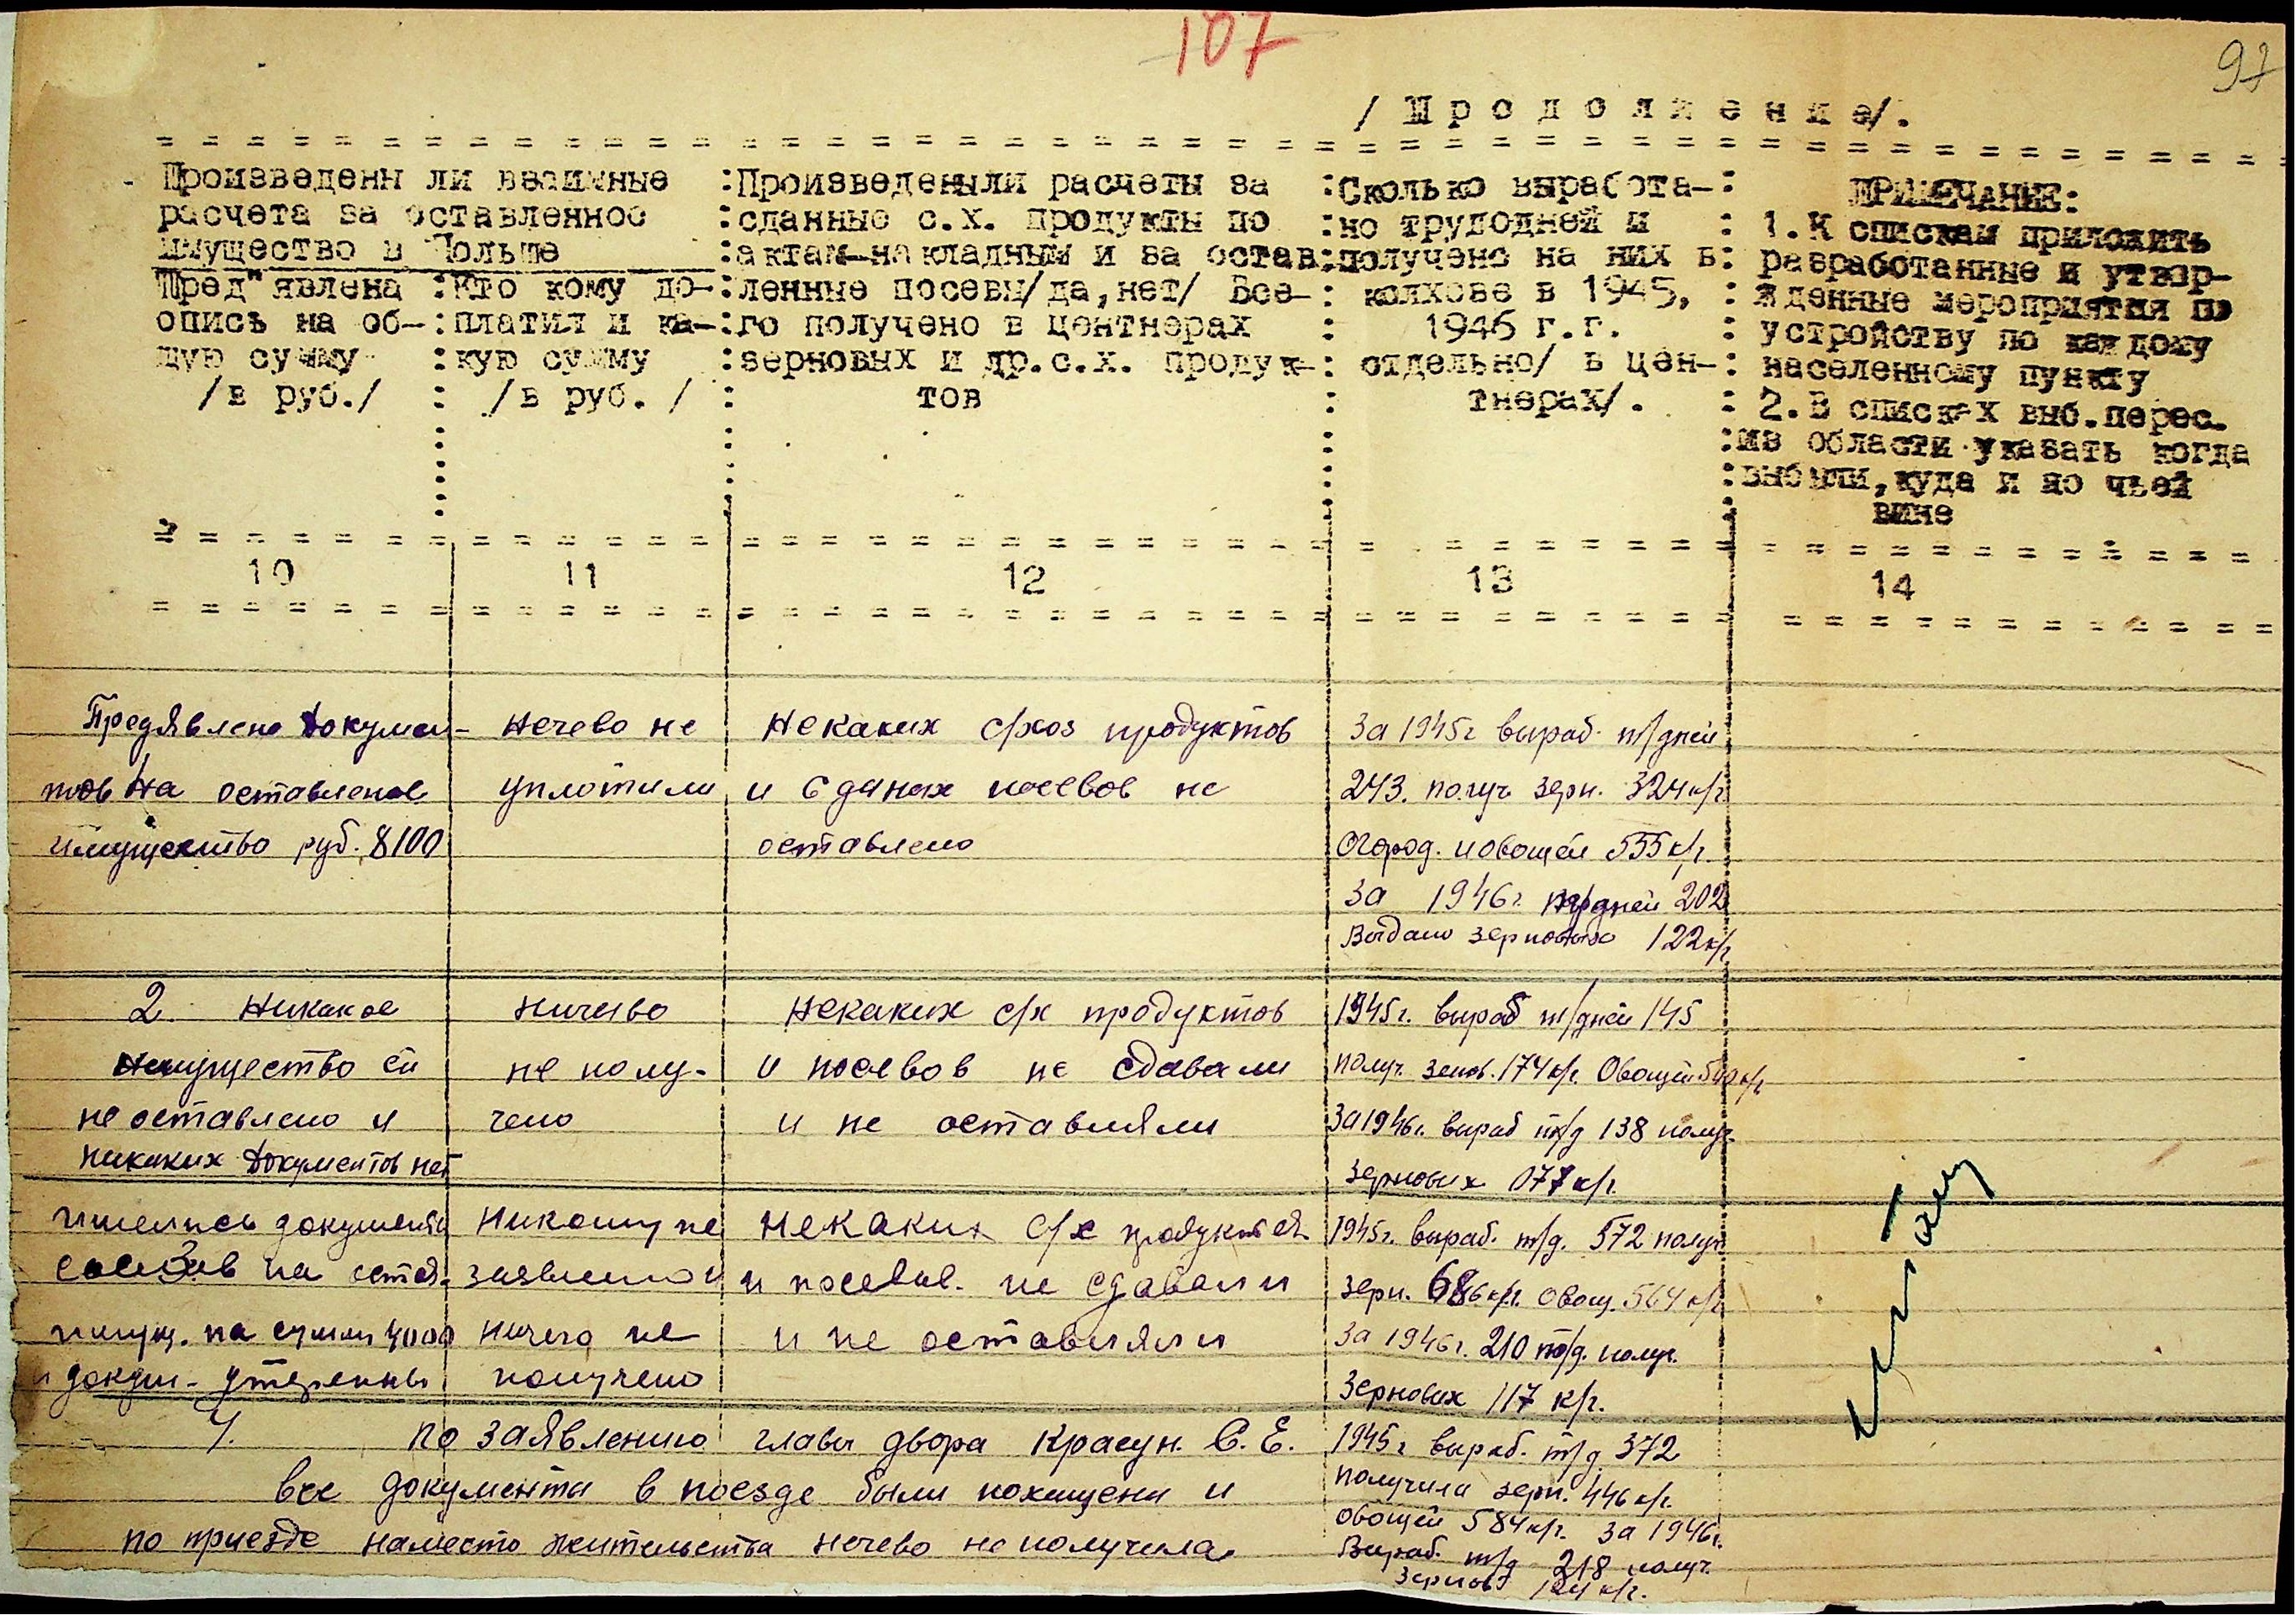 107
97
/ П р о д о л ж е н и е/.
Произведены ли взаимные
расчета за оставленное
имущество в Польше
Пред"явлена
опись на об-
щую сумму
/в руб./
Кто кому до-
платил и ка-
кую сумму
/в руб. /
Произведеныли расчеты за
сданные с.х. продукты по
актам-накладным и за остав
ленные посевы/да,нет/ Все-
го получено в центнерах
зерновых и др.с.х. продук-
тов
Сколько выработа-
но трудодней и
получено на них в
колхозе в 1945,
1946 г.г.
отдельно/ в цен-
тнерах/.
ПРИМЕЧАНИЕ:
1.К спискам приложить
разработанные и утвер-
жденные мероприятия по
устройству по каждому
населенному пункту
2.В списках выб.перес.
из области указать когда
выбыли,куда и по чьей
вине
10 11 12 13 14
Предявлено докумен-
тов на оставленое
имущество руб. 8100
Нечево не
уплотили
Некаких с/хоз продуктов
и сданых посевов не
оставлено
За 1945г выраб. т/дней
243. получ зерн. 324 к/г
Огород. и овощей 555 к/г.
За 1946г. т/дней 202
Выдано зерновых 122 к/г
2. Никакое
имущество ей
не оставлено и
никаких документов нет
Ничево
не полу-
чено
Некаких с/х продуктов
и посевов не сдавали
и не оставляли
1945г. выраб т/дней 145
получ. 174 к/г. Овощей 540 к/г
За 1946г. выраб т/д 138 получ.
зерновых 077 к/г.
3
имелись документи
на остав.
имущ. на сумму 4000
и докум- утеренны
Никому не
заявлено и
ничего не
получено
Некаких с/х продуктов
и посевов. не сдавали
и не оставляли
1945г. выраб. т/д. 572 получ
зерн. 686 к/г. овощ. 564 к/г
За 1946г. 210 т/д. получ.
Зерновых 117 к/г.
4. по заявлению главы двора Красун. С. Е.
все документи в поезде были похищены и
по приезде наместо жительства нечево не получила
1945г выраб. т/д 372
получила зерн. 446 к/г.
овощей 584 к/г. За 1946г.
Выраб. т/д 218 получ.
зернов 124 к/г.